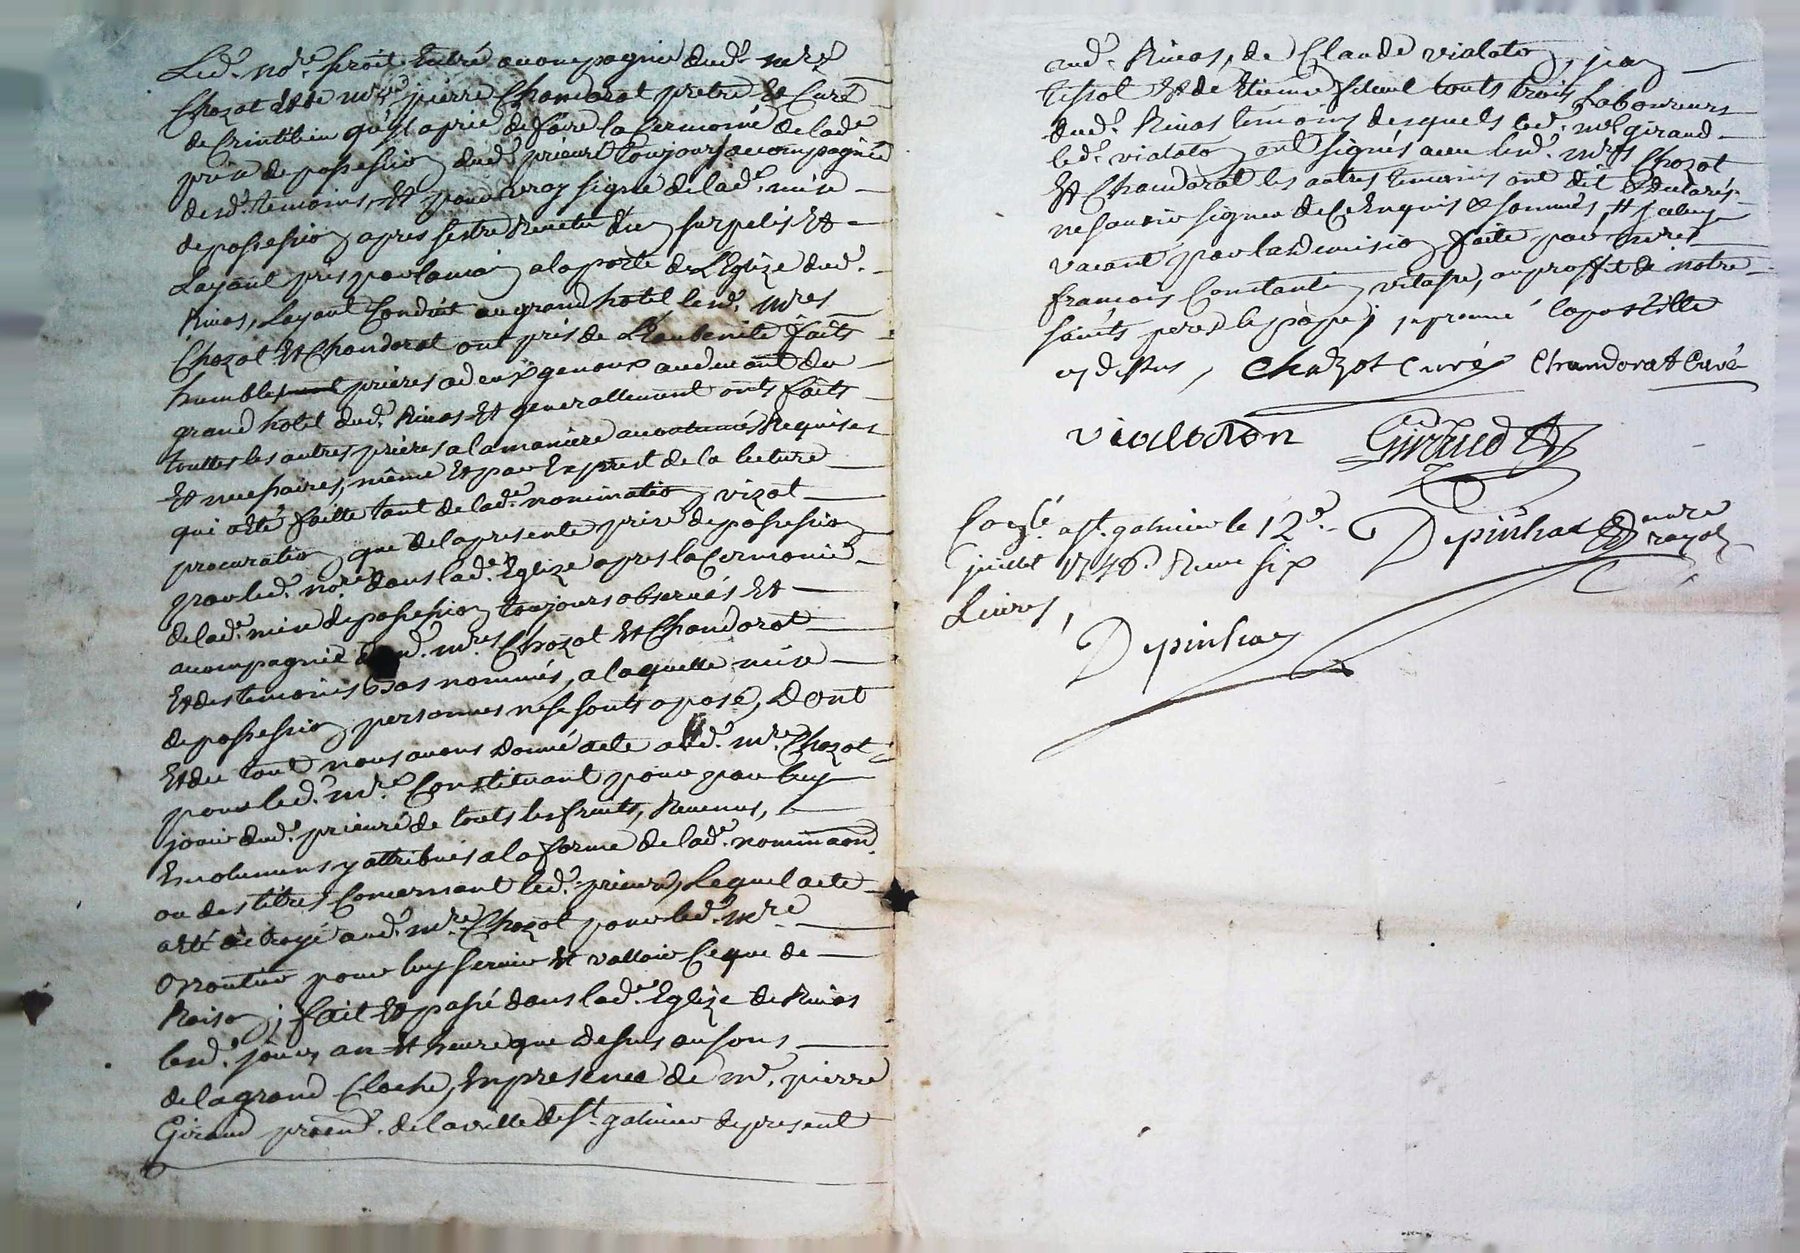 Led. nore. seroit entré accompagnie dud. mre
Chazot et de mre pierre Chandorat pretre et Curé
de Crintilieu qu'il a prié de faire la Cermonie de lade
prise de possession dud. prieuré toujours accompagnée
desd. temoins, et pour vray signe de lad. mise
de possession apres s'estre Revetu d'un surpelis et
Layant pris par la main a la porte de L'Eglize dud.
Rivas, Layant Conduit au grand hotel lesd. Mres
Chazot et Chandorat ont pris de L'eau benite faits
humbles prieres a deux genoux au devant du
grand hotel dud. Rivas et generallement onts faits
touttes les autres prieres a la maniere accoutumée Requises
et necessaires, même et par Exprest de la lecture
qui a été faitte tant de lade. nomination, vizat
procuration que de la presente prise de possession
par led. nore. dans lade. Eglize apres la Cermonie
de lade. mise de possession toujours observés et
accompagnié desd. mres Chazot et Chandorat
et des temoins bas nommés, a laquelle mise
de possession personnes ne se sonts oposé, Dont
et du tout nous avons donné acte aud. mre. Chazot
pour led. mre. Constituant pour par luy
jouir dud. prieuré de touts les fruits, Revenus,
Emolumens y attribués a la forme de lade. nominaon.
ou des titres Concernant led. prieuré, Lequel acte
a été octroyé aud. mre Chazot pour led. mre
pour luy servir et valloir Ceque de
Raison; fait et passé dans lade. Eglize de Rivas
lesd. jour, an et heure que dessus au sons
de la grand Cloche, En presence de mr. pierre
Giraud de la ville de St. galmier de present
aud. Rivas, de Claude violaton, jean
tissot et de Etienne touts trois Laboureurs
dud. Rivas temoins desquels led. mr giraud
led. violaton ont signés avec lesd. Mres Chazot
et Chandorat les autres temoins ont dit et declarés
ne savoir signer de Ce Enquis et sommés, #
vacant par la demission faite par
francois Constantin vitasse, au proffit de notre
saints peres le pape; aprouvé lapostille
cy dessus, Chazot Curé Chandorat Curé
violaton Giraud
Coné a St. galmier le 12e. Depinhac nore royal
juillet 1746. Receu six
Livres,
Depinhac